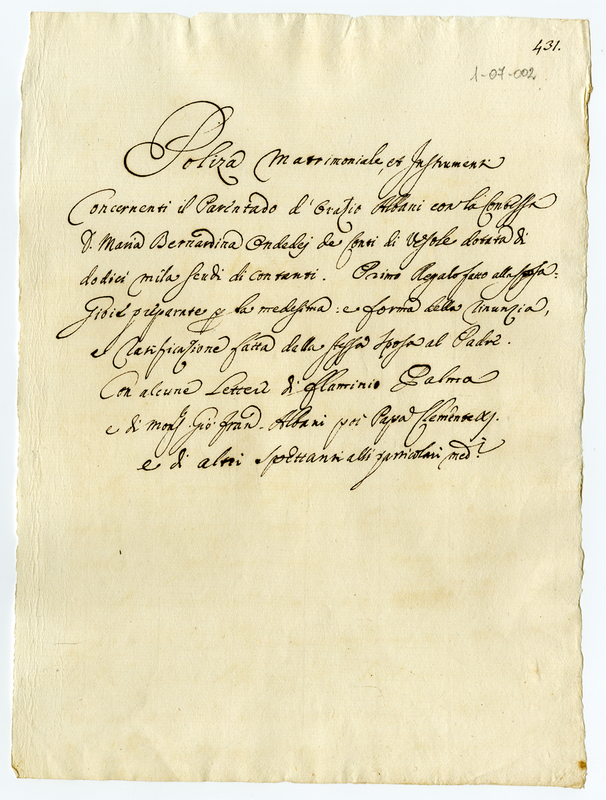 431.
1-07-002
Poliza Matrimoniale, et Instrumenti
Concernenti il Parentado d' Orazio Albani con la Contessa
D. Maria Bernardina Ondedej de Conti di Vesole dotata di
dodici mila scudi di contanti. Primo Regalo fatto alla sposa:
Gioie preparate p la medesima: e forma della rinunzia,
e Ratificazione fatta dalla stessa sposa al Padre.
Con alcune Lettere di Flaminio Palma
e di Mons.r Gio Fran. Albani poi Papa Clemente XI.
e di altri spettanti alli particolari med.i